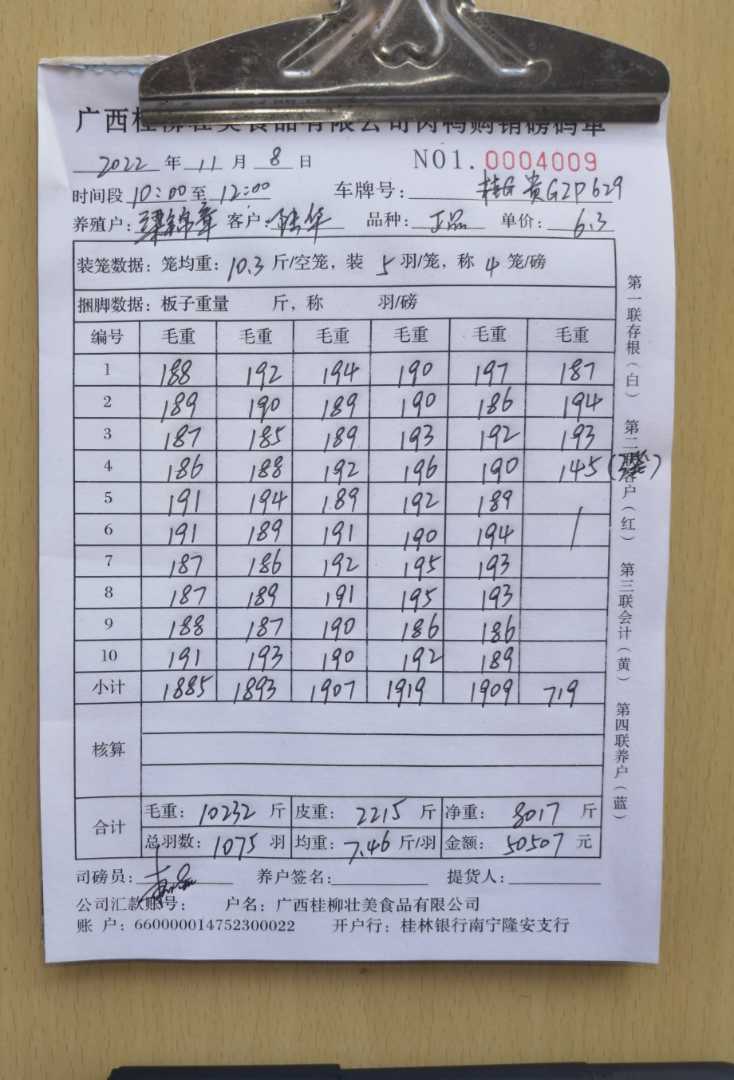 广西桂柳壮美食品有限公司肉鸭购销磅码单
2022 年 11 月 8 日 NO1.0004009
时间段 10:00 至 12:00 车牌号: 贵GZP629
养殖户: 梁锦章 客户: 陆华 品种: 正品 单价: 6.3
装笼数据: 笼均重: 10.3 斤/空笼, 装 5 羽/笼, 称 4 笼/磅
捆脚数据: 板子重量 斤, 称 羽/磅
编号 毛重 毛重 毛重 毛重 毛重 毛重
1 188 192 194 190 197 187
2 189 190 189 190 186 194
3 187 185 189 193 192 193
4 186 188 192 196 190 145
5 191 194 189 192 189
6 191 189 191 190 194
7 187 186 192 195 193
8 187 189 191 195 193
9 188 187 190 186 186
10 191 193 190 192 189
小计 1885 1893 1907 1919 1909 719
核算
合计 毛重: 10232 斤 皮重: 2215 斤 净重: 8017 斤
总羽数: 1075 羽 均重: 7.46 斤/羽 金额: 50507 元
司磅员: 养户签名: 提货人:
公司汇款账号: 户名: 广西桂柳壮美食品有限公司
账 户: 660000014752300022 开户行: 桂林银行南宁隆安支行
第一联存根(白) 第二联客户(红) 第三联会计(黄) 第四联养户(蓝)